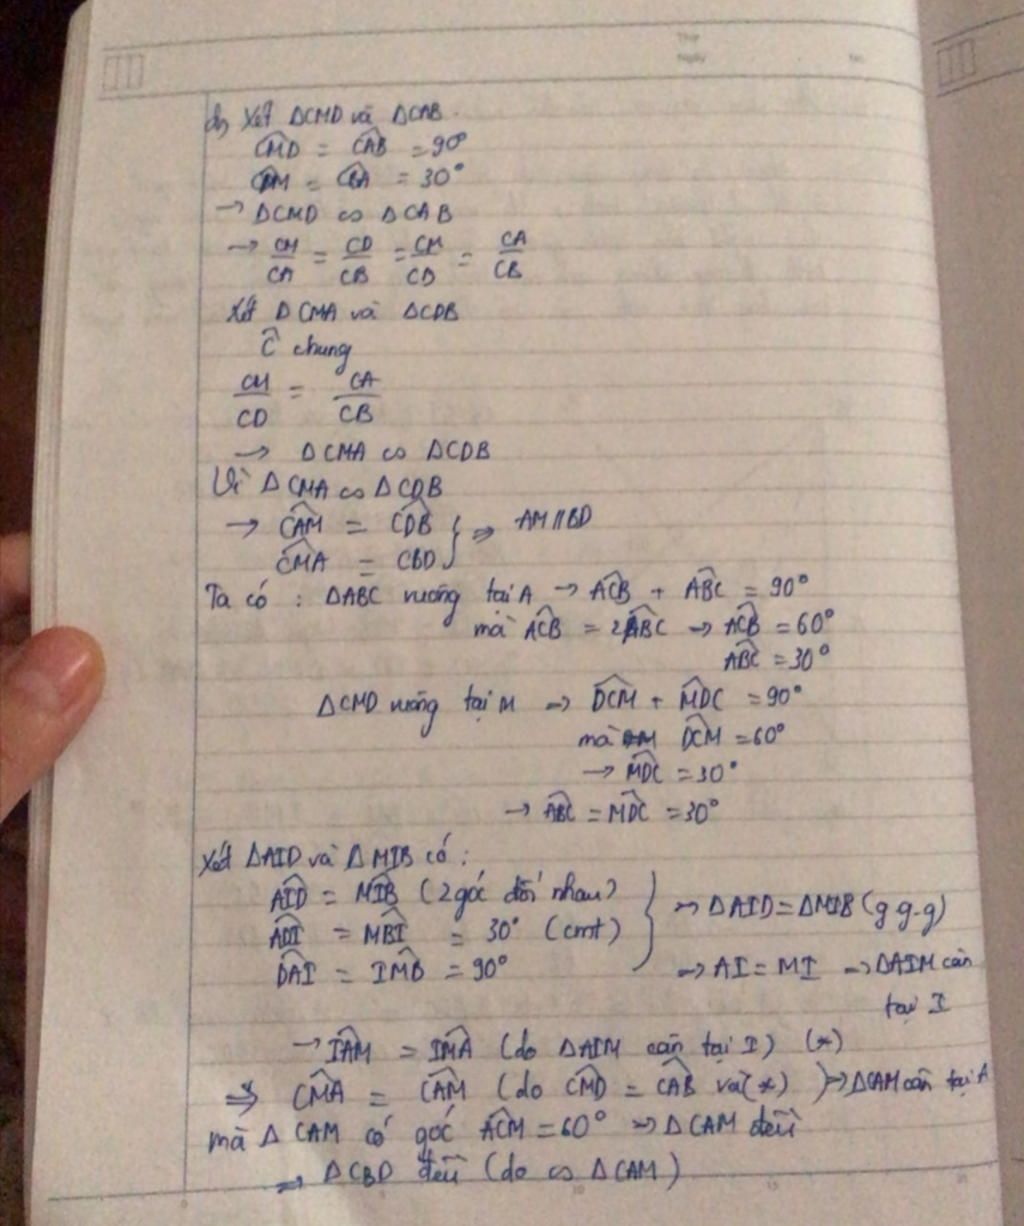 Thứ
Ngày No.
d, Xét ΔCMD và ΔCAB.
CMD̂ = CAB̂ = 90°
CDM̂ = CBÂ = 30°
→ ΔCMD ∽ ΔCAB
→ CM/CA = CD/CB = CM/CD = CA/CB
Xét ΔCMA và ΔCDB
Ĉ chung
CM/CD = CA/CB
→ ΔCMA ∽ ΔCDB
Vì ΔCMA ∽ ΔCDB
→ CAM̂ = CDB̂ } ⇒ AM//BD
CMÂ = CBD
Ta có : ΔABC vuông tại A → ACB̂ + ABĈ = 90°
mà ACB̂ = 2ABĈ → ACB̂ = 60°
ABĈ = 30°
ΔCMD vuông tại M → DCM̂ + MDĈ = 90°
mà DCM̂ = 60°
→ MDĈ = 30°
→ ABĈ = MDĈ = 30°
Xét ΔAID và ΔMIB có :
AID̂ = MIB̂ (2 góc đối nhau)
ADÎ = MBÎ = 30° (cmt) } → ΔAID = ΔMIB (g.g.g)
DAÎ = IMB̂ = 90° → AI = MI → ΔAIM cân
tại I
→ IAM̂ = IMÂ (do ΔAIM cân tại I) (*)
⇒ CMÂ = CAM̂ (do CMD̂ = CAB̂ và (*) ) → ΔCAM cân tại A
mà ΔCAM có góc ACM̂ = 60° → ΔCAM đều
⇒ ΔCBD đều (do ∽ ΔCAM)